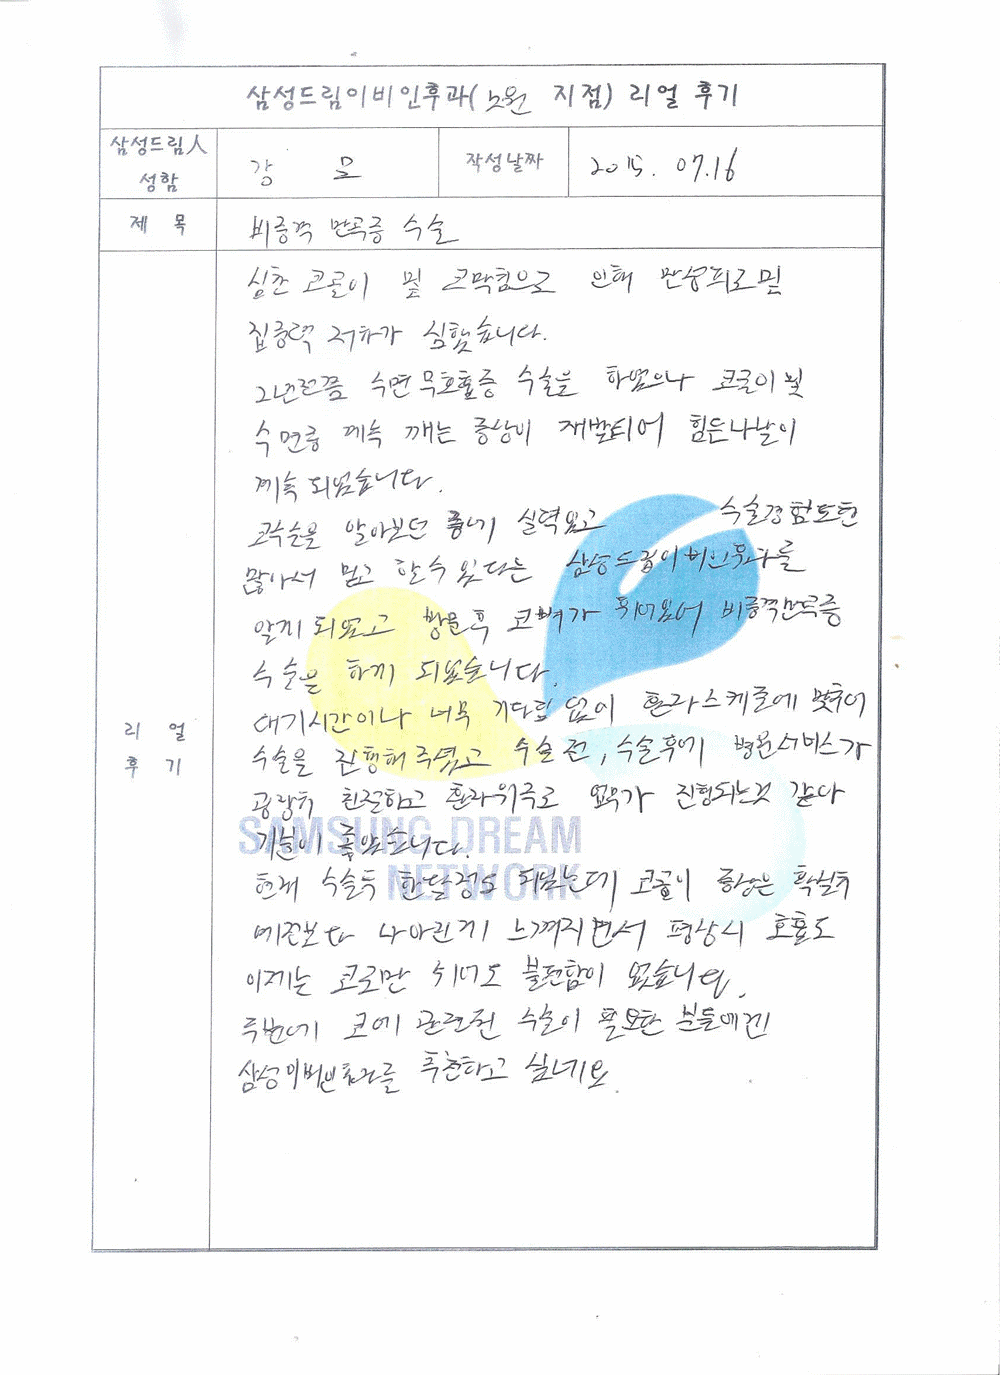 삼성드림이비인후과(노원 지점) 리얼 후기
삼성드림人 성함
강 모
작성날짜
2015. 07.16
제 목
비중격 만곡증 수술
리 얼 후 기
심한 코골이 및 코막힘으로 인해 만성피로및
집중력 저하가 심했습니다.
2년전쯤 수면무호흡증 수술을 하였으나 코골이 및
수면중 계속 깨는 증상이 재발되어 힘든나날이
계속 되었습니다.
코수술을 알아보던 중에 실력있고 수술경험도
많아서 믿고 할수 있다는 삼성드림이비인후과를
알게 되었고 방문후 코뼈가 휘어있어 비중격만곡증
수술을 하게 되었습니다.
대기시간이나 너무 기다림 없이 환자스케줄에 맞추어
수술을 진행해주셨고 수술전, 수술후에 병원서비스가
굉장히 친절하고 환자위주로 업무가 진행되는것 같아
기분이 좋았습니다.
현재 수술후 한달정도 되었는데 코골이 증상은 확실히
예전보다 나아진게 느껴지면서 평상시 호흡도
이제는 코로만 쉬어도 불편함이 없습니다.
주변에 코에 관련된 수술이 필요한 분들에겐
삼성이비인후과를 추천하고 싶네요
SAMSUNG DREAM
NETWORK